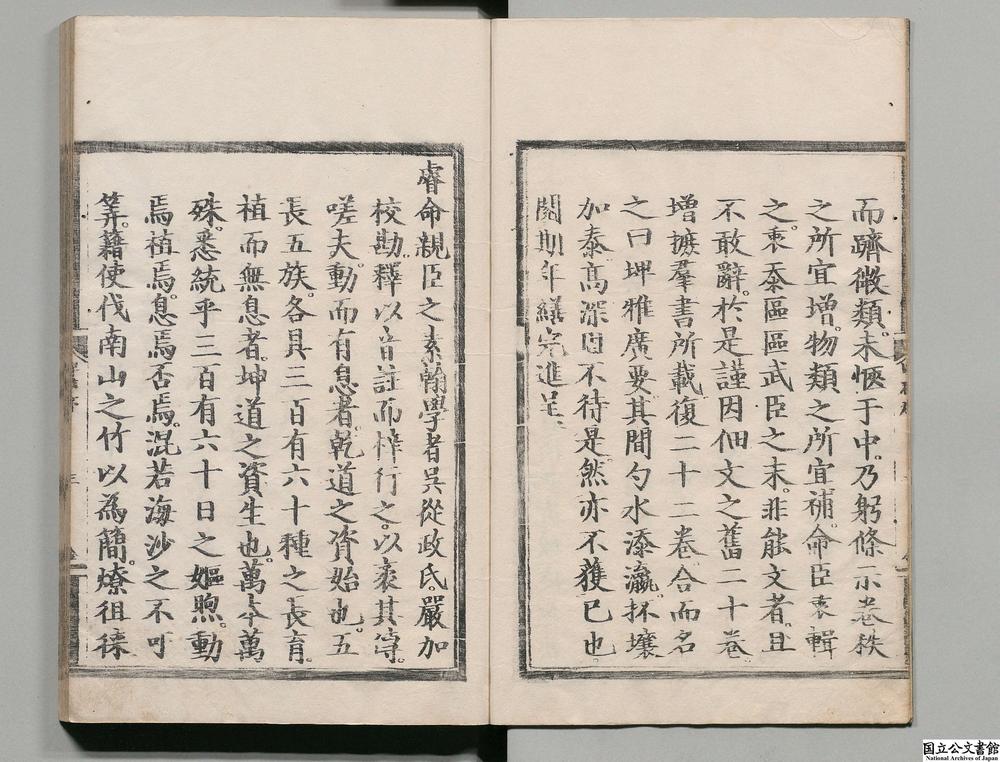 而躋微類。未愜于中。乃躬條示卷秩
之所宜增。物類之所宜補。命臣裒輯
之。裒忝區區武臣之末。非能文者。且
不敢辭。於是謹因佃文之舊二十卷
增摭羣書所載復二十二卷合而名
之曰坤雅廣要其間勺水添瀛。抔壤
加泰。高深固不待是。然亦不獲已也。
閱期年繕完進呈。
睿命親臣之素翰學者吳從政氏。嚴加
校勘。釋以音註而梓行之。以衷其傳。
嗟夫。動而有息者。乾道之資始也。五
長五族。各具三百有六十種之長育。
植而無息者。坤道之資生也。萬本萬
殊。悉統乎三百有六十日之嫗煦。動
焉植焉。息焉否焉。混若海沙之不可
筭。籍使伐南山之竹以為簡。燎徂徠
国立公文書館
National Archives of Japan